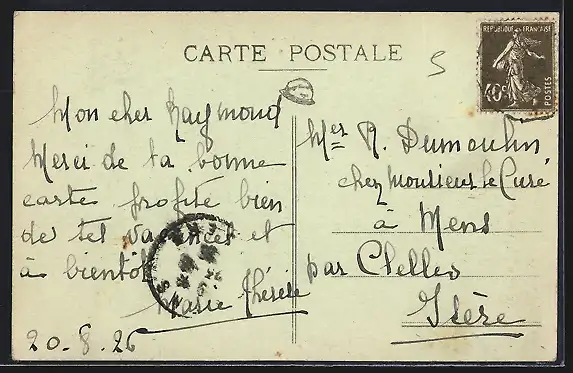 CARTE POSTALE
5
REPUBLIQUE FRANÇAISE
40c
POSTES
Mon cher Raymond
Merci de ta bonne
carte profite bien
de tes vacances et
à bientôt
Marie Thérèse
20.8.26
Mer R. Dumoulin
chez Monsieur le Curé
à Mens
par Clelles
Isère